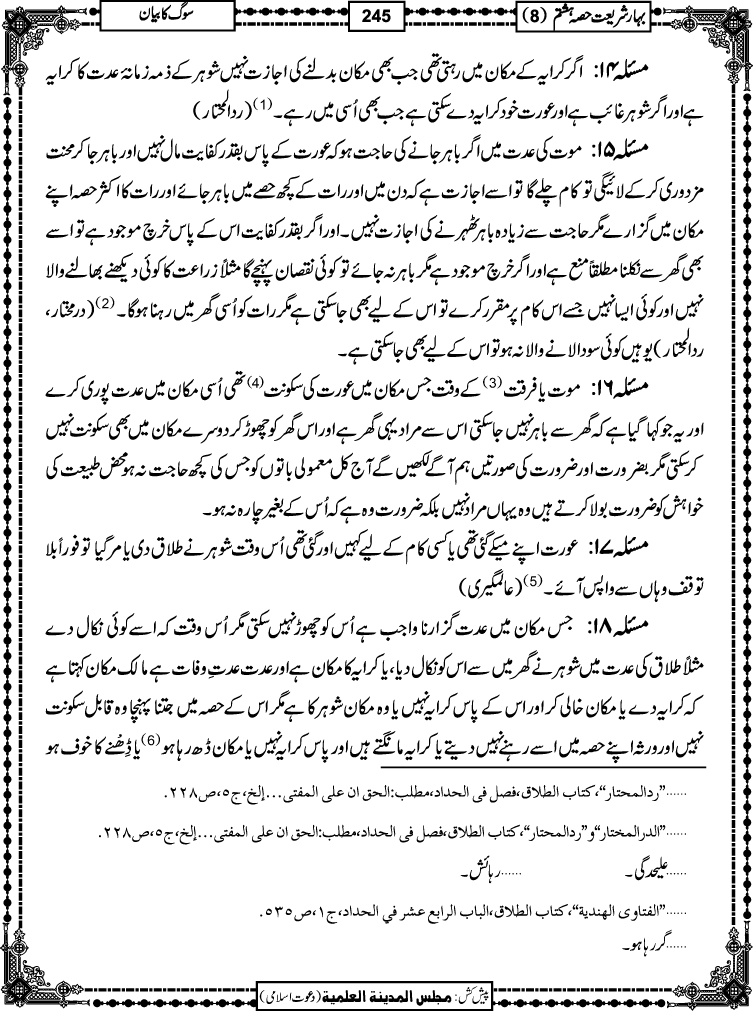 بہارِ شریعت حصہ ہشتم (8)
245
سوگ کا بیان
مسئلہ ۱۴: اگر کرایہ کے مکان میں رہتی تھی جب بھی مکان بدلنے کی اجازت نہیں شوہر کے ذمہ زمانۂ عدت کا کرایہ
ہے اور اگر شوہر غائب ہے اور عورت خود کرایہ دے سکتی ہے جب بھی اُسی میں رہے۔(1) (ردالمحتار)
مسئلہ ۱۵: موت کی عدت میں اگر باہر جانے کی حاجت ہو کہ عورت کے پاس بقدر کفایت مال نہیں اور باہر جا کر محنت
مزدوری کر کے لائیگی تو کام چلے گا تو اسے اجازت ہے کہ دن میں اور رات کے کچھ حصے میں باہر جائے اور رات کا اکثر حصہ اپنے
مکان میں گزارے مگر حاجت سے زیادہ باہر ٹھہرنے کی اجازت نہیں۔ اور اگر بقدر کفایت اس کے پاس خرچ موجود ہے تو اسے
بھی گھر سے نکلنا مطلقاً منع ہے اور اگر خرچ موجود ہے مگر باہر نہ جائے تو کوئی نقصان پہنچے گا مثلاً زراعت کا کوئی دیکھنے بھالنے والا
نہیں اور کوئی ایسا نہیں جسے اس کام پر مقرر کرے تو اس کے لیے بھی جاسکتی ہے مگر رات کو اُسی گھر میں رہنا ہوگا۔(2) (درمختار،
ردالمحتار) یوہیں کوئی سودا لانے والا نہ ہو تو اس کے لیے بھی جاسکتی ہے۔
مسئلہ ۱۶: موت یا فرقت(3) کے وقت جس مکان میں عورت کی سکونت(4) تھی اُسی مکان میں عدت پوری کرے
اور یہ جو کہا گیا ہے کہ گھر سے باہر نہیں جاسکتی اس سے مراد یہی گھر ہے اور اس گھر کو چھوڑ کر دوسرے مکان میں بھی سکونت نہیں
کرسکتی مگر بضرورت اور ضرورت کی صورتیں ہم آگے لکھیں گے آج کل معمولی باتوں کو جس کی کچھ حاجت نہ ہو محض طبیعت کی
خواہش کو ضرورت بولا کرتے ہیں وہ یہاں مراد نہیں بلکہ ضرورت وہ ہے کہ اُس کے بغیر چارہ نہ ہو۔
مسئلہ ۱۷: عورت اپنے میکے گئی تھی یا کسی کام کے لیے کہیں اور گئی تھی اُس وقت شوہر نے طلاق دی یا مر گیا تو فوراً بلا
توقف وہاں سے واپس آئے۔(5) (عالمگیری)
مسئلہ ۱۸: جس مکان میں عدت گزارنا واجب ہے اُس کو چھوڑ نہیں سکتی مگر اُس وقت کہ اسے کوئی نکال دے
مثلاً طلاق کی عدت میں شوہر نے گھر میں سے اس کو نکال دیا، یا کرایہ کا مکان ہے اور عدت عدتِ وفات ہے مالک مکان کہتا ہے
کہ کرایہ دے یا مکان خالی کر اور اس کے پاس کرایہ نہیں یا وہ مکان شوہر کا ہے مگر اس کے حصہ میں جتنا پہنچا وہ قابل سکونت
نہیں اور ورثہ اپنے حصہ میں اسے رہنے نہیں دیتے یا کرایہ مانگتے ہیں اور پاس کرایہ نہیں یا مکان ڈھ رہا ہو(6) یا ڈہنے کا خوف ہو
......”ردالمحتار“، کتاب الطلاق، فصل فی الحداد، مطلب: الحق ان علی المفتی...إلخ، ج٥، ص٢٢٨.
......”الدرالمختار“ و ”ردالمحتار“، کتاب الطلاق، فصل فی الحداد، مطلب: الحق ان علی المفتی...إلخ، ج٥، ص٢٢٨.
......علیحدگی۔ ......رہائش۔
......”الفتاوی الھندیة“، کتاب الطلاق، الباب الرابع عشر في الحداد، ج١، ص٥٣٥.
......گر رہا ہو۔
پیش کش: مجلس المدینة العلمیة (دعوت اسلامی)